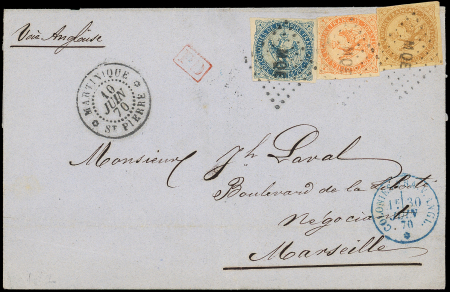 Voie Anglaise
MARTINIQUE
10
JUIN
70
ST PIERRE
P.D.
MQE
MQE
MQE
Monsieur Jh Laval
Boulevard de la
Négociant
Marseille
30
JUIN
70
ANGL.